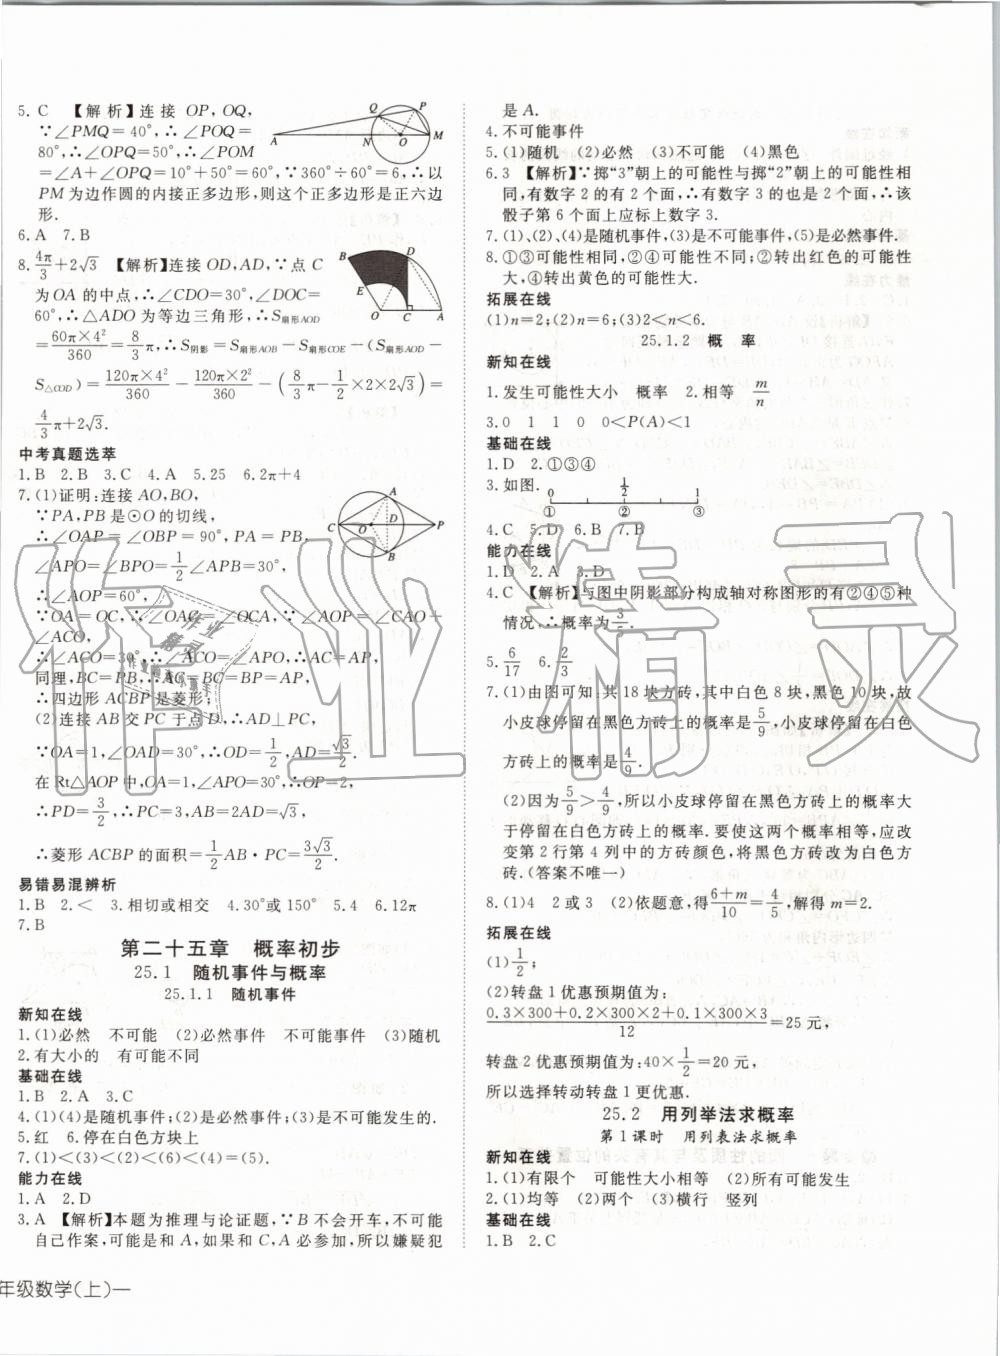 5. C 【解析】连接 OP,OQ,
∵∠PMQ=40°,∴∠POQ=
80°,∴∠OPQ=50°,∴∠POM
=∠A+∠OPQ=10°+50°=60°,∵360°÷60=6,∴以
PM为边作圆的内接正多边形,则这个正多边形是正六边
形.
6. A 7. B
8. 4π/3+2√3 【解析】连接OD,AD,∵点C
为OA的中点,∴∠CDO=30°,∠DOC=
60°,∴△ADO为等边三角形,∴S扇形AOD
=60π×4²/360=8/3π,∴S阴影=S扇形AOB-S扇形COE-(S扇形AOD-
S△COD)=120π×4²/360-120π×2²/360-(8/3π-1/2×2×2√3)=
4/3π+2√3.
中考真题选萃
1. B 2. B 3. C 4. A 5. 25 6. 2π+4
7. (1)证明:连接AO,BO,
∵PA,PB是⊙O的切线,
∴∠OAP=∠OBP=90°,PA=PB,
∠APO=∠BPO=1/2∠APB=30°,
∴∠AOP=60°,
∵OA=OC,∴∠OAC=∠OCA,∵∠AOP=∠CAO+
∠ACO,
∴∠ACO=30°,∴∠ACO=∠APO,∴AC=AP,
同理,BC=PB,∴AC=BC=BP=AP,
∴四边形ACBP是菱形;
(2)连接AB交PC于点D,∴AD⊥PC,
∵OA=1,∠OAD=30°,∴OD=1/2,AD=√3/2.
在Rt△AOP中,OA=1,∠APO=30°,∴OP=2.
∴PD=3/2,∴PC=3,AB=2AD=√3,
∴菱形ACBP的面积=1/2AB·PC=3√3/2.
易错易混辨析
1. B 2. < 3. 相切或相交 4. 30°或150° 5. 4 6. 12π
7. B
第二十五章 概率初步
25.1 随机事件与概率
25.1.1 随机事件
新知在线
1. (1)必然 不可能 (2)必然事件 不可能事件 (3)随机
2. 有大小的 有可能不同
基础在线
1. B 2. A 3. C
4. (1)(4)是随机事件;(2)是必然事件;(3)是不可能发生的.
5. 红 6. 停在白色方块上
7. (1)<(3)<(2)<(6)<(4)=(5).
能力在线
1. A 2. D
3. A 【解析】本题为推理与论证题,∵B不会开车,不可能
自己作案,可能是和A,如果和C,A必参加,所以嫌疑犯
年级数学(上)一
是A.
4. 不可能事件
5. (1)随机 (2)必然 (3)不可能 (4)黑色
6. 3 【解析】∵掷“3”朝上的可能性与掷“2”朝上的可能性相
同,有数字2的有2个面,∴有数字3的也是2个面,∴该
骰子第6个面上应标上数字3.
7. (1)、(2)、(4)是随机事件,(3)是不可能事件,(5)是必然事件.
8. ①③可能性相同,②④可能性不同;②转出红色的可能性
大,④转出黄色的可能性大.
拓展在线
(1)n=2;(2)n=6;(3)2<n<6.
25.1.2 概 率
新知在线
1. 发生可能性大小 概率 2. 相等 m/n
3. 0 1 1 0 0<P(A)<1
基础在线
1. D 2. ①③④
3. 如图.
0 1/2 1
① ② ③
4. C 5. D 6. B 7. B
能力在线
1. D 2. A 3. D
4. C 【解析】与图中阴影部分构成轴对称图形的有②④⑤种
情况,∴概率为3/5.
5. 6/17 6. 2/3
7. (1)由图可知:共18块方砖,其中白色8块,黑色10块,故
小皮球停留在黑色方砖上的概率是5/9,小皮球停留在白色
方砖上的概率是4/9.
(2)因为5/9>4/9,所以小皮球停留在黑色方砖上的概率大
于停留在白色方砖上的概率.要使这两个概率相等,应改
变第2行第4列中的方砖颜色,将黑色方砖改为白色方
砖.(答案不唯一)
8. (1)4 2或3 (2)依题意,得(6+m)/10=4/5,解得m=2.
拓展在线
(1)1/2;
(2)转盘1优惠预期值为:
(0.3×300+0.2×300×2+0.1×300×3)/12=25元,
转盘2优惠预期值为:40×1/2=20元,
所以选择转动转盘1更优惠.
25.2 用列举法求概率
第1课时 用列表法求概率
新知在线
1. (1)有限个 可能性大小相等 (2)所有可能发生
2. (1)均等 (2)两个 (3)横行 竖列
基础在线
1. B 2. C
作业精灵